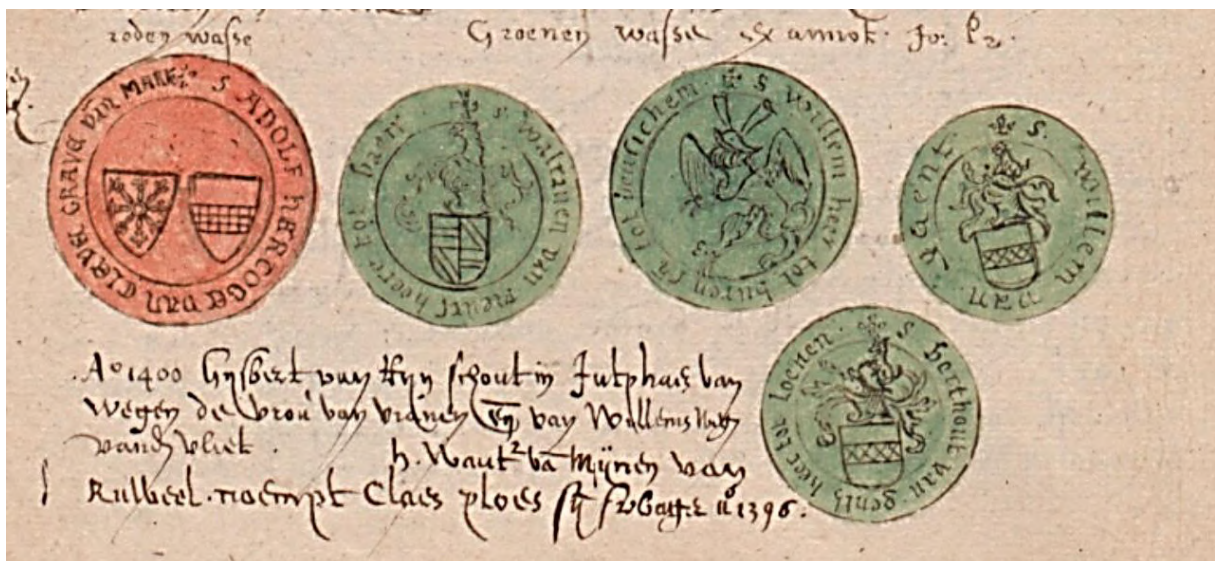 roden wasse
Groenen wasse
S ADOLF HERCOGE VAN CLEVE GRAVE VAN MARK
s walraven van meurs heere tot baer
s willem her tot buren tot busichem
s. willem van gaent
s berthout van gents heer tot loenen
Aº 1400 Gysbert van Ryn schout in Jutphaes van
wegen de vrou van vianen en van Willems wegen
vanden vliet . h. Wautr va Mijnen van
Rulbeel noempt Claes ploes sij 1396.